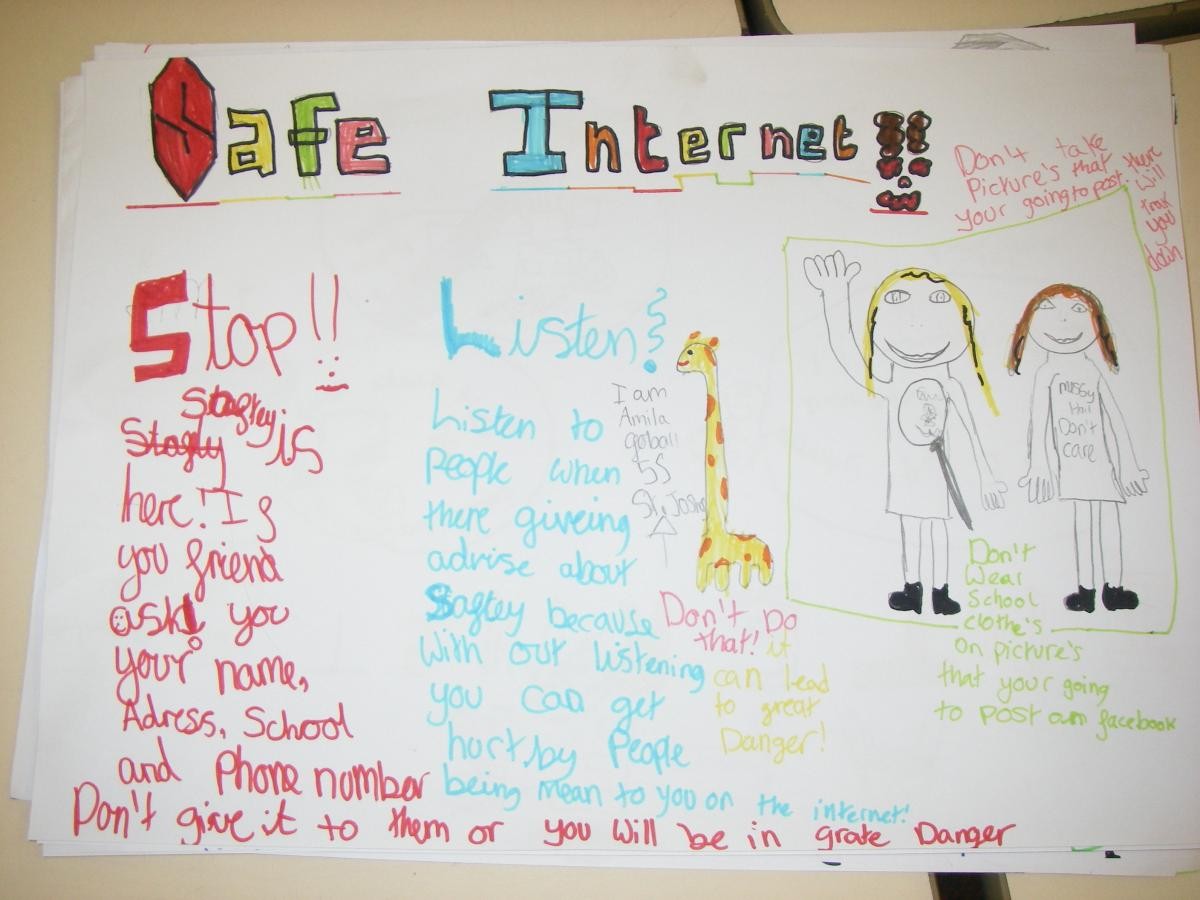 Safe Internet!!
Stop!!
Stagtey
is
here! If
you friend
ask! you
your name,
Adress, School
and Phone number
Don't give it to them or you will be in grate Danger
Listen
Listen to
People when
there giveing
advise about
Sagtey because
with out listening
you can get
hurt, by People
being mean to you on the internet!
I am
Amila
55
Don't Do
that! it
can lead
to great
Danger!
Don't take
Picture's that
your going to post. there
will
track
you
down
messy
Hair
Don't
care
Don't
Wear
School
clothe's
on picture's
that your going
to post on facebook